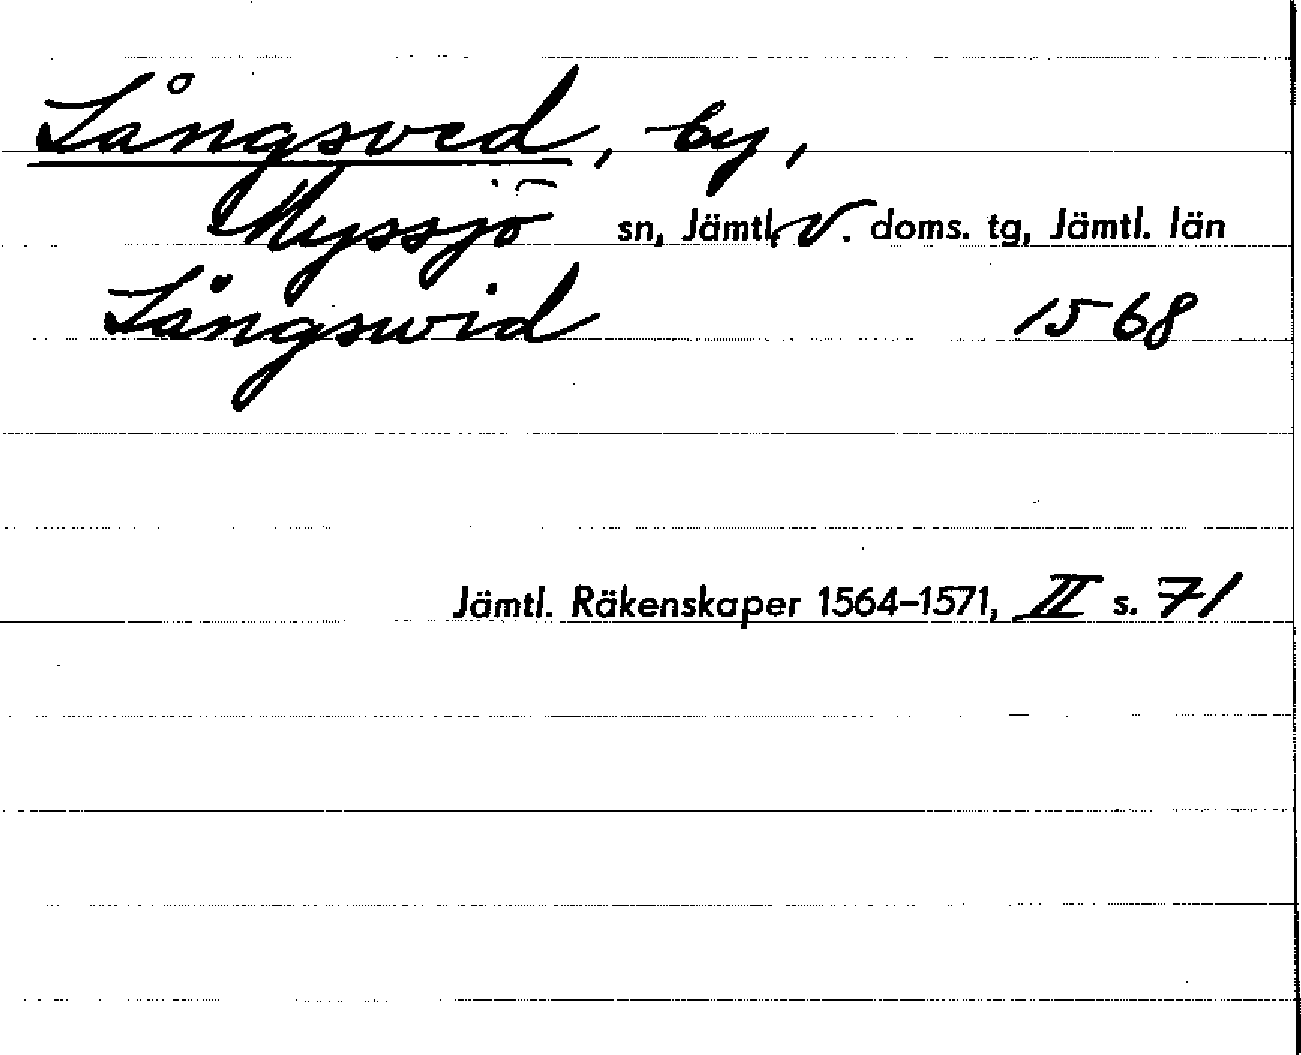 Långsved, by,
Myssjö sn, Jämtl. V. doms. tg, Jämtl. län
Långswid 1568
Jämtl. Räkenskaper 1564–1571, II s. 71